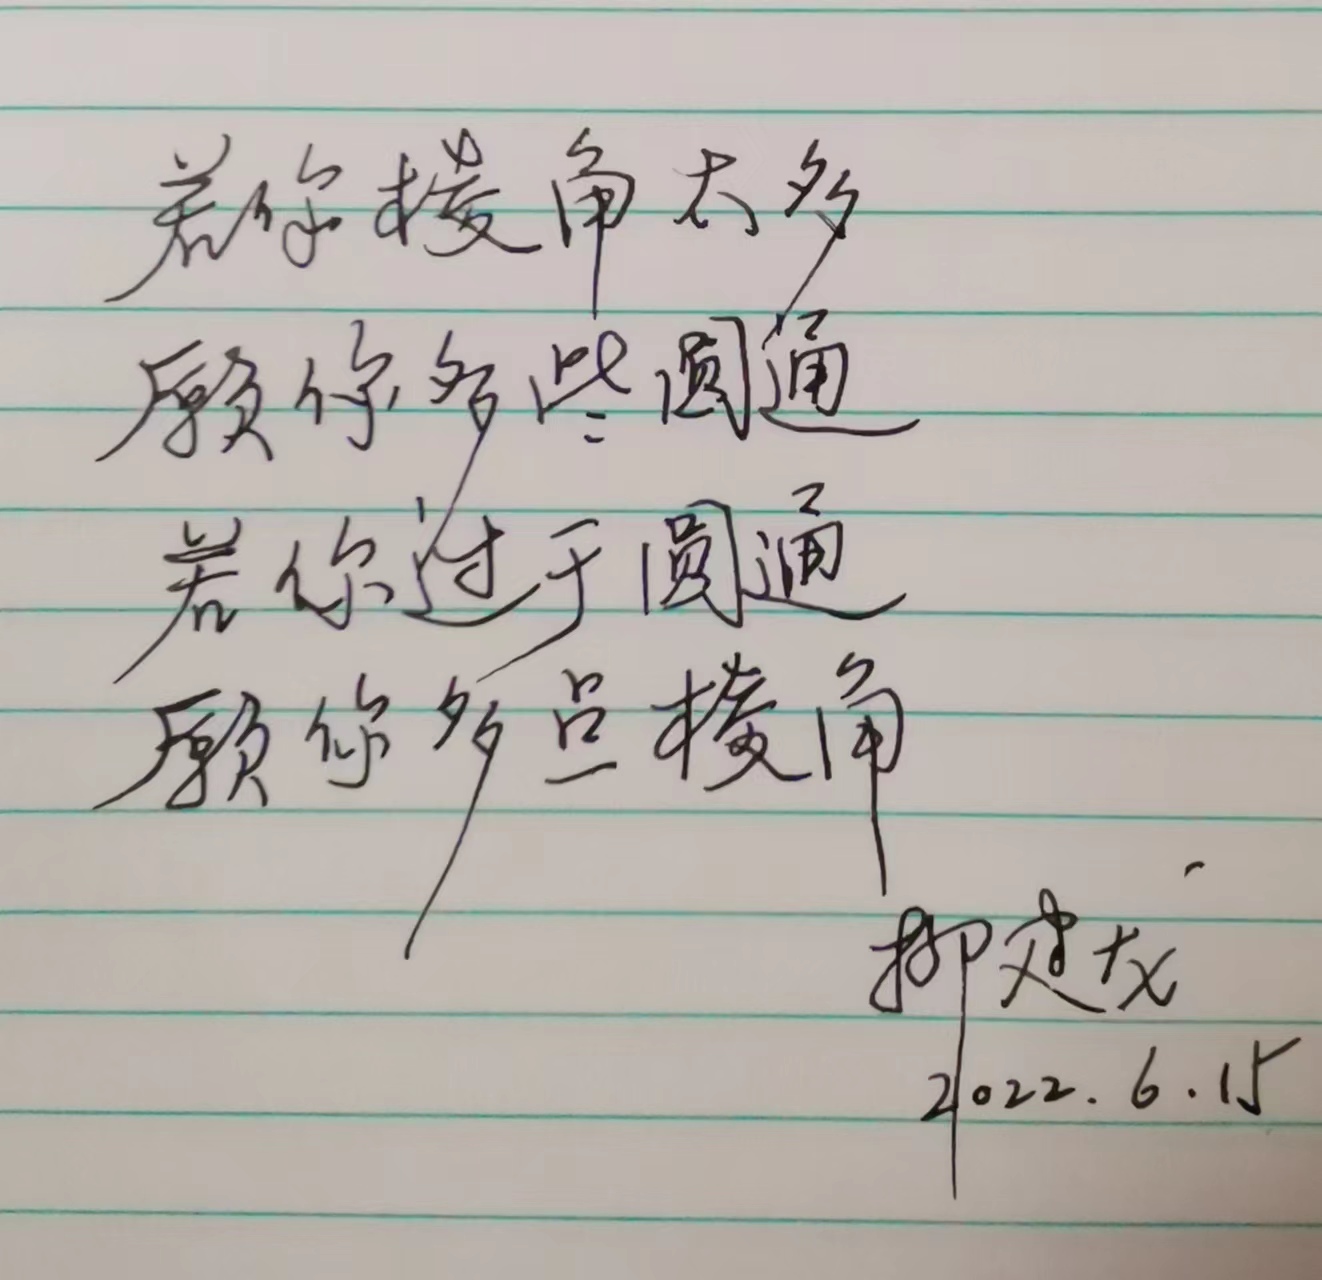 若你棱角太多
愿你多些圆通
若你过于圆通
愿你多点棱角
柳建龙
2022.6.15